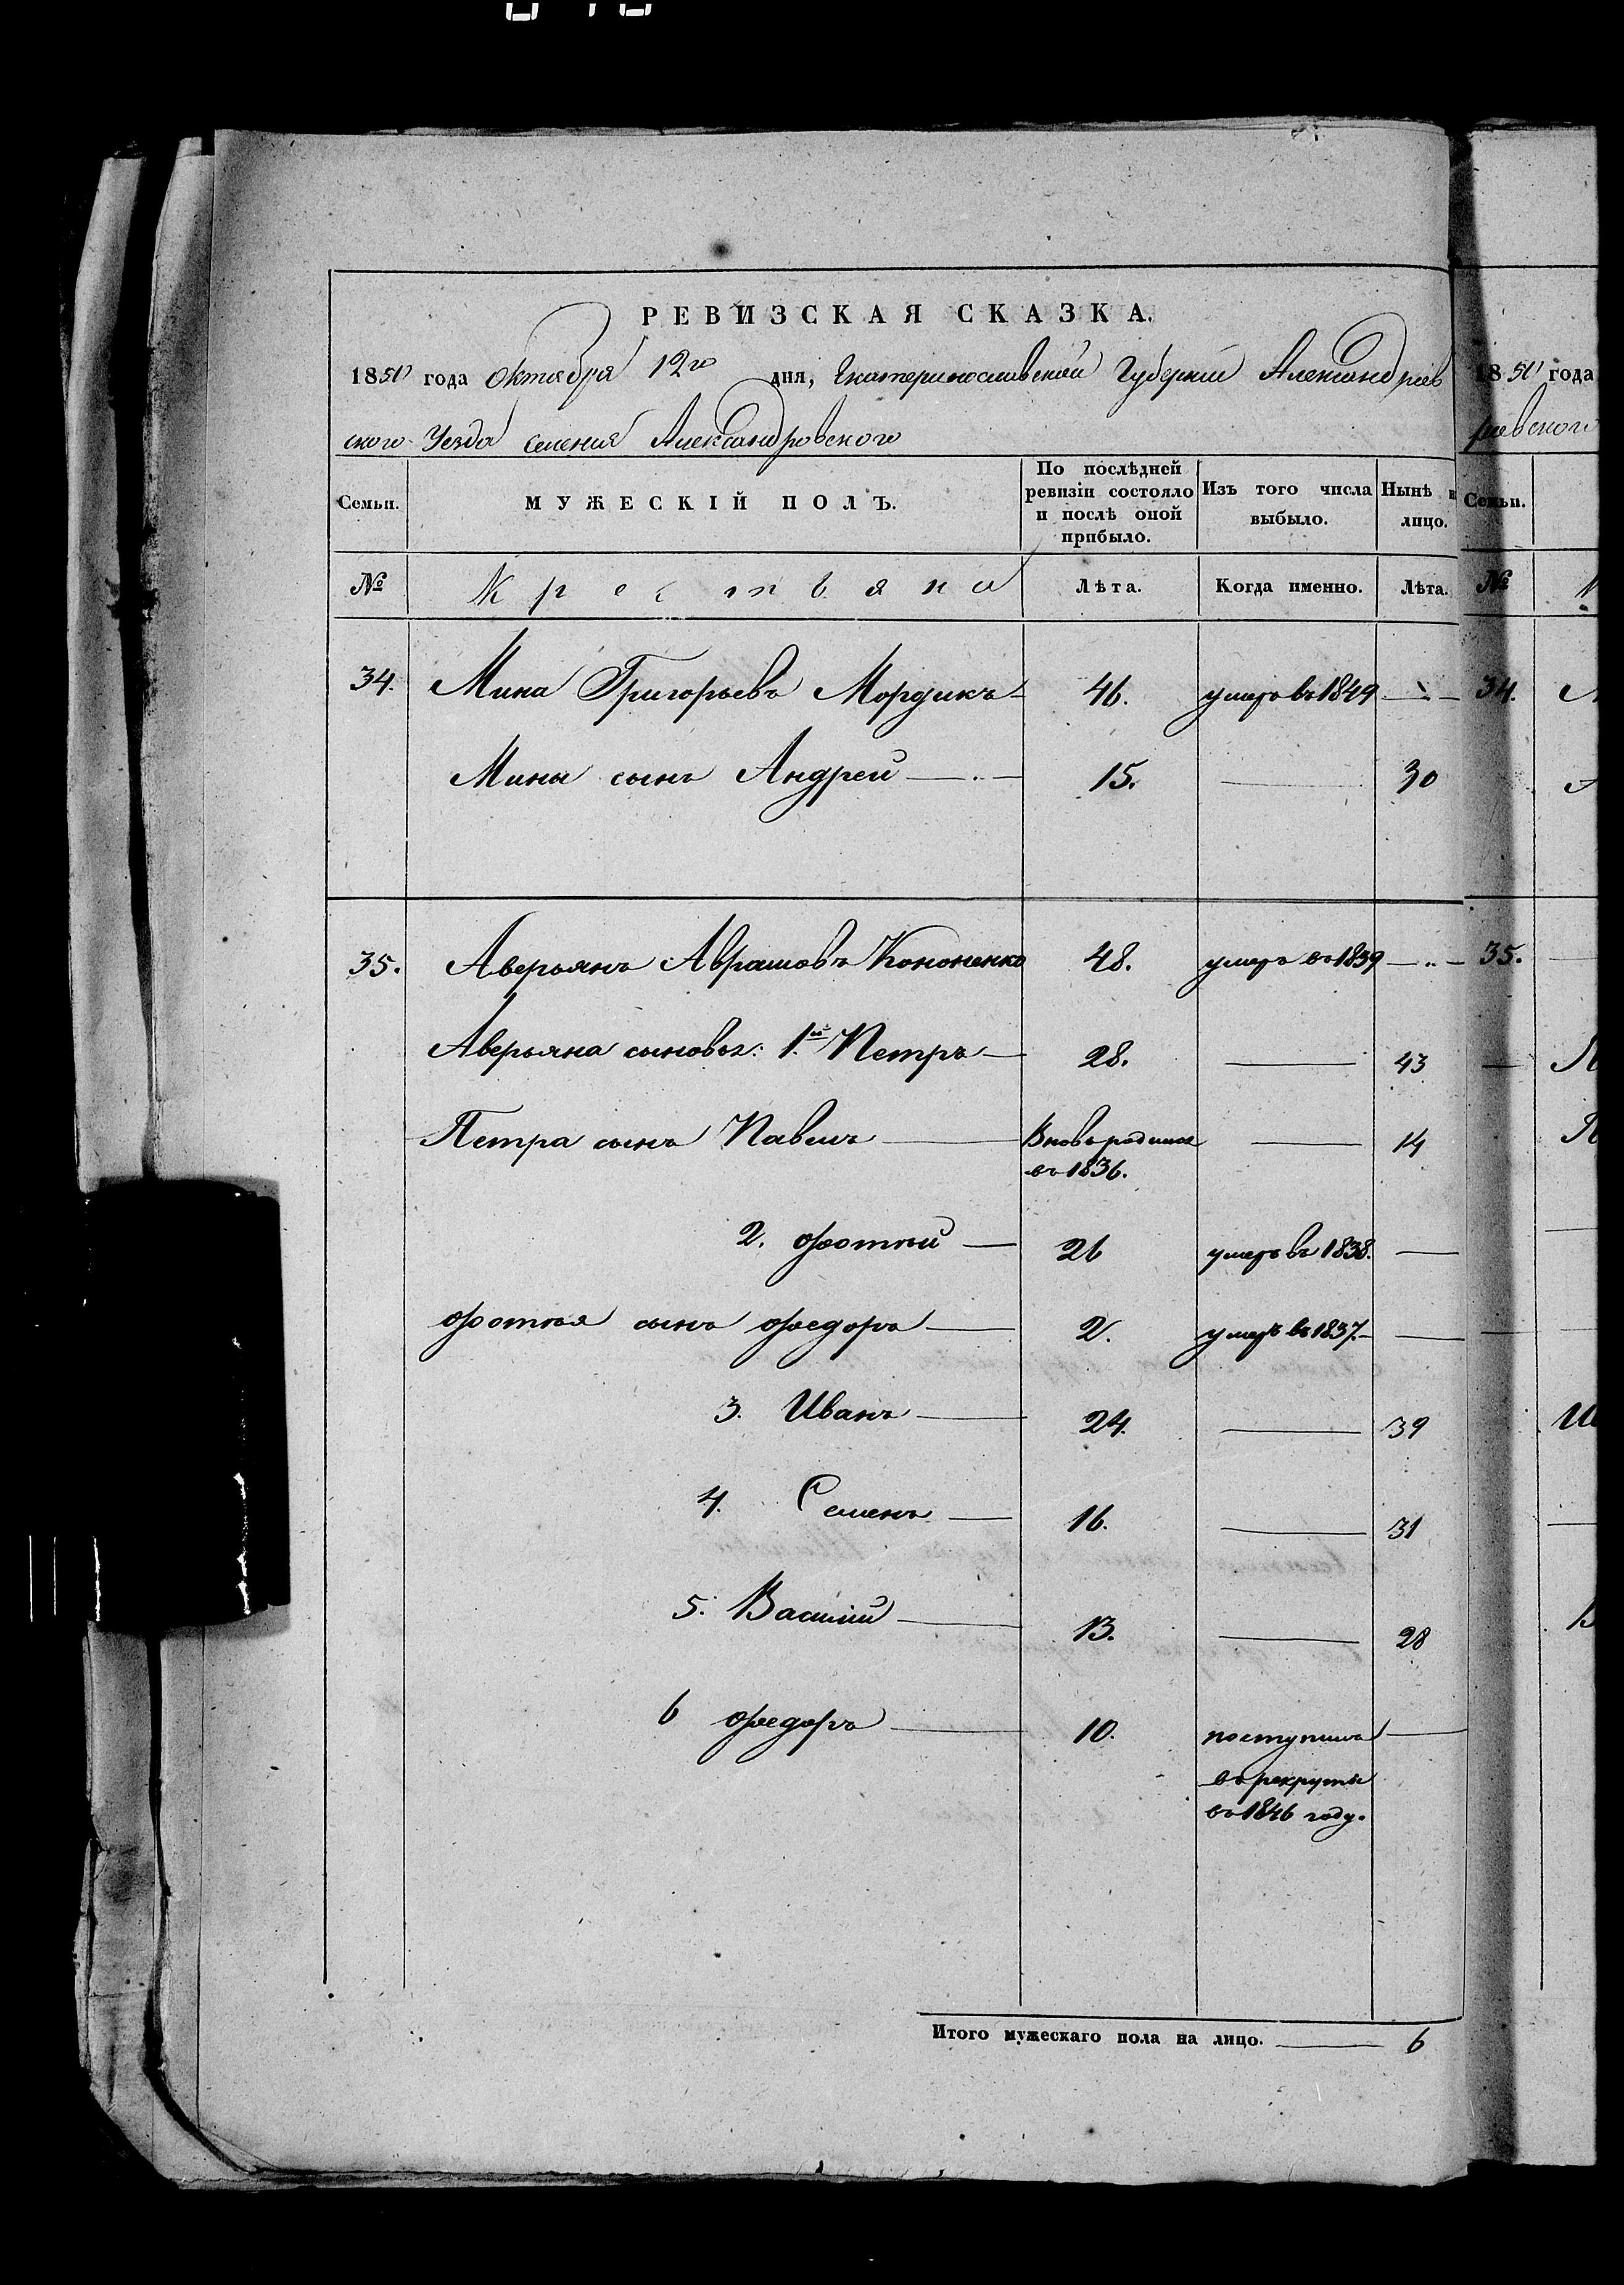 РЕВИЗСКАЯ СКАЗКА.
1850 года Октября 12го дня, Екатеринославской Губернии Александров
ского Уезда селения Александровского
Семьи. МУЖЕСКІЙ ПОЛЪ. По послѣдней ревизіи состояло и послѣ оной прибыло. Изъ того числа выбыло. Нынѣ н лицо.
№ Крестьяна Лѣта. Когда именно. Лѣта.
34. Мина Григорьевъ Мордикъ 46. умеръ въ 1849
Мины сынъ Андрей 15. 30
35. Аверьянъ Аврамовъ Кононенко 48. умеръ въ 1839
Аверьяна сыновья: 1й Петръ 28. 43
Петра сынъ Павелъ Вновь родился 14
въ 1836.
2. Фотій 26 умеръ въ 1838.
Фотія сынъ Федоръ 2. умеръ въ 1837.
3. Иванъ 24. 39
4. Семенъ 16. 31
5. Василій 13. 28
6 Федоръ 10. поступилъ
въ рекруты
въ 1846 году.
Итого мужескаго пола на лицо. 6
1850 года
ровского
Семьи.
№
34.
35.